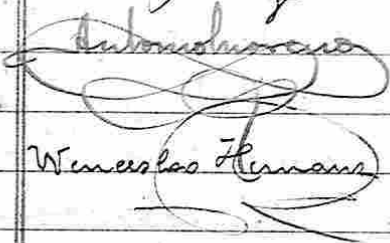 Antonio Moreno
Wenceslao Hernanz